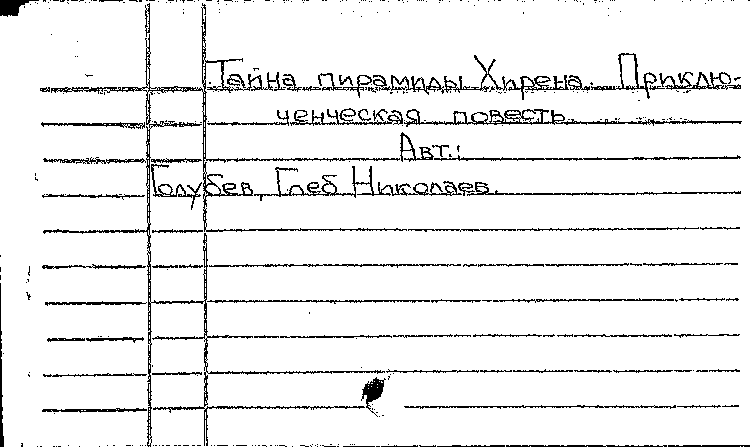 Тайна пирамиды Хирена. Приклю-
ченческая повесть.
Авт.:
Голубев, Глеб Николаев.